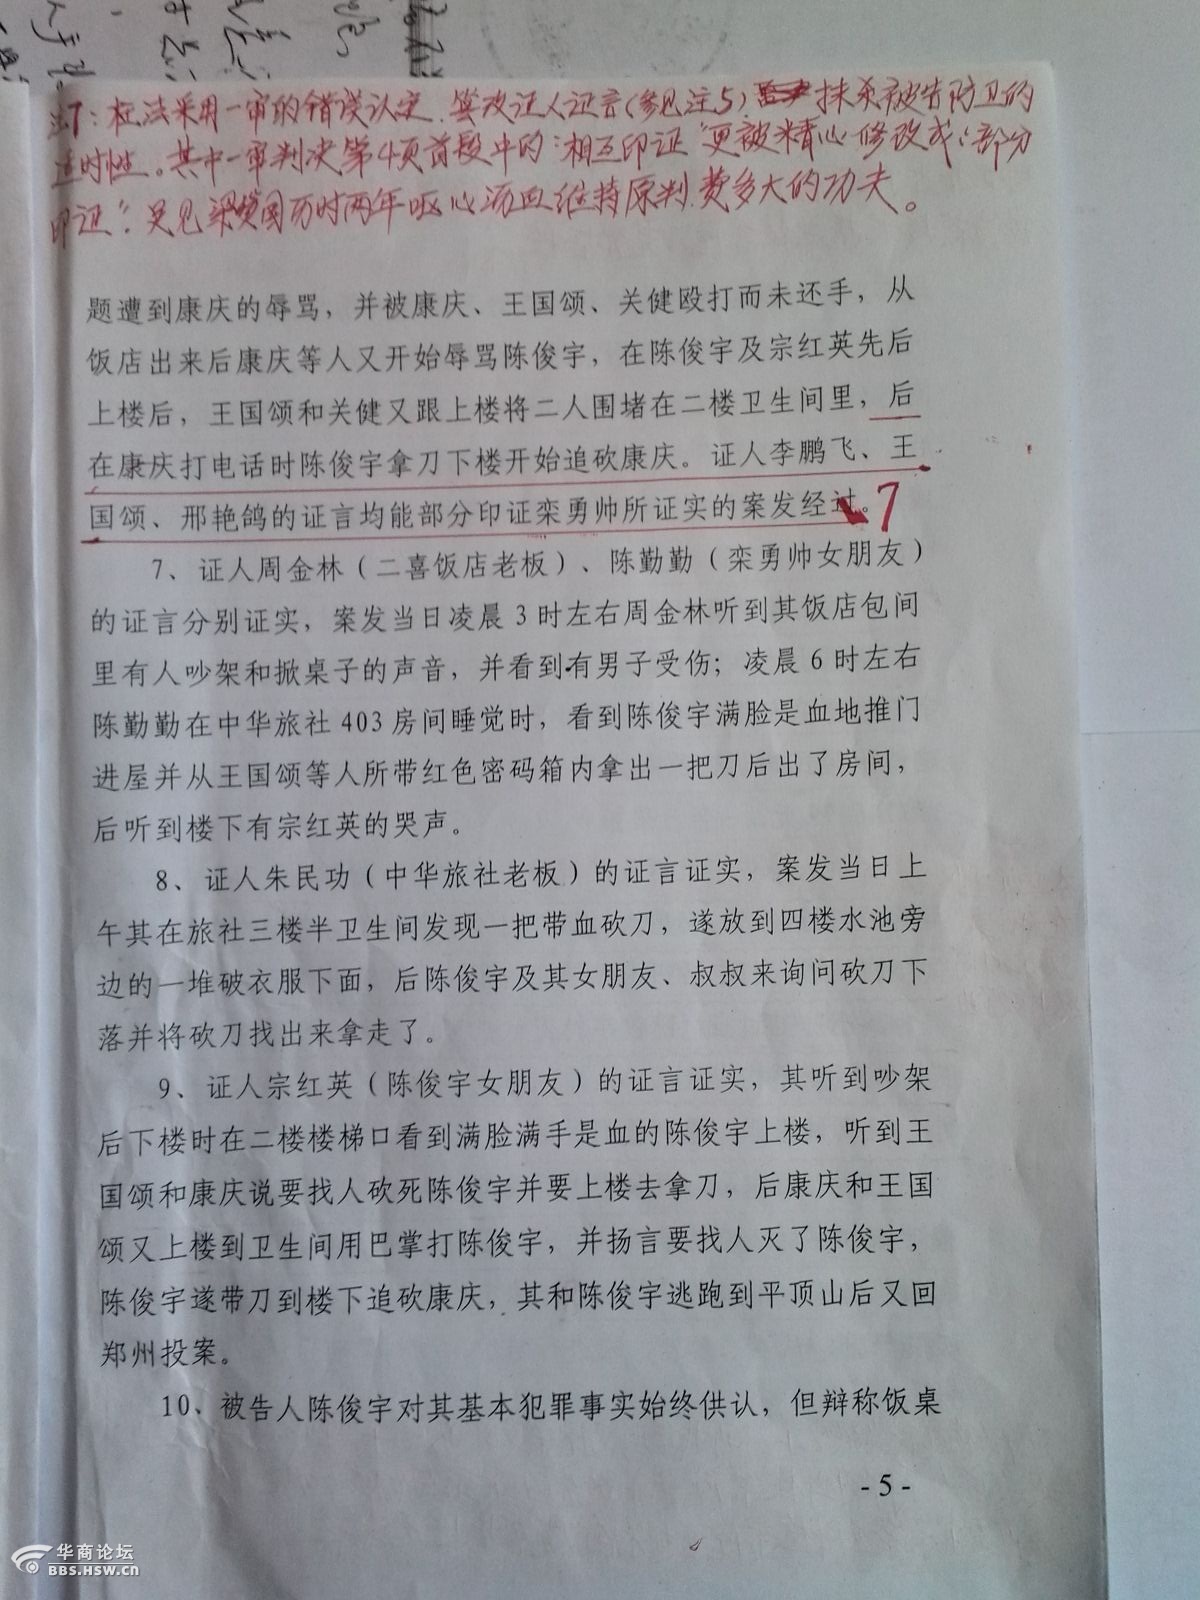 注7：枉法采用一审的错误认定、篡改证人证言(参见注5)抹杀被告防卫的
适时性。其中一审判决第4页首段中的"相互印证"更被精心修改成"部分
印证"。足见梁 国历时两年呕心沥血维持原判、费多大的功夫。
题遭到康庆的辱骂，并被康庆、王国颂、关健殴打而未还手，从
饭店出来后康庆等人又开始辱骂陈俊宇，在陈俊宇及宗红英先后
上楼后，王国颂和关健又跟上楼将二人围堵在二楼卫生间里，后
在康庆打电话时陈俊宇拿刀下楼开始追砍康庆。证人李鹏飞、王
国颂、邢艳鸽的证言均能部分印证栾勇帅所证实的案发经过。7
7、证人周金林（二喜饭店老板）、陈勤勤（栾勇帅女朋友）
的证言分别证实，案发当日凌晨3时左右周金林听到其饭店包间
里有人吵架和掀桌子的声音，并看到有男子受伤；凌晨6时左右
陈勤勤在中华旅社403房间睡觉时，看到陈俊宇满脸是血地推门
进屋并从王国颂等人所带红色密码箱内拿出一把刀后出了房间，
后听到楼下有宗红英的哭声。
8、证人朱民功（中华旅社老板）的证言证实，案发当日上
午其在旅社三楼半卫生间发现一把带血砍刀，遂放到四楼水池旁
边的一堆破衣服下面，后陈俊宇及其女朋友、叔叔来询问砍刀下
落并将砍刀找出来拿走了。
9、证人宗红英（陈俊宇女朋友）的证言证实，其听到吵架
后下楼时在二楼楼梯口看到满脸满手是血的陈俊宇上楼，听到王
国颂和康庆说要找人砍死陈俊宇并要上楼去拿刀，后康庆和王国
颂又上楼到卫生间用巴掌打陈俊宇，并扬言要找人灭了陈俊宇，
陈俊宇遂带刀到楼下追砍康庆，其和陈俊宇逃跑到平顶山后又回
郑州投案。
10、被告人陈俊宇对其基本犯罪事实始终供认，但辩称饭桌
- 5 -
华商论坛
BBS.HSW.CN